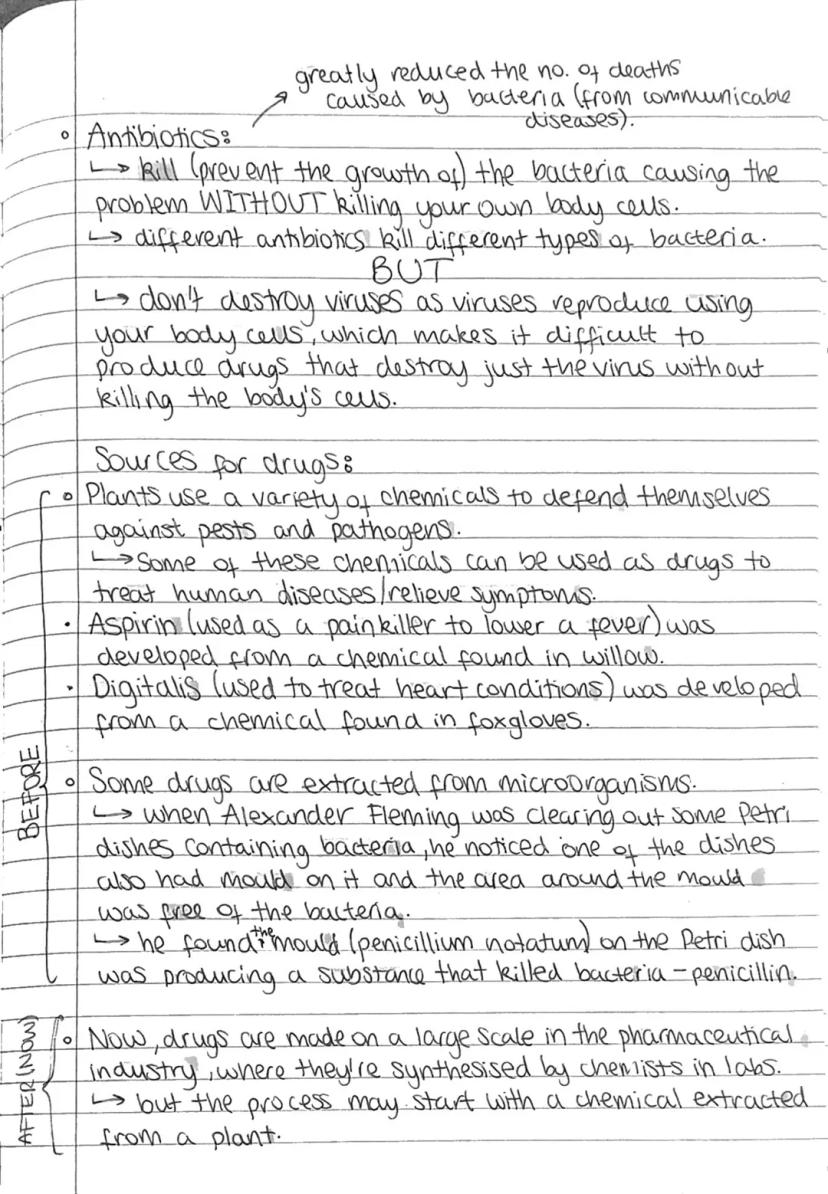 greatly reduced the no. of deaths
caused by bacteria (from communicable
diseases).
Antibiotics:
↳ kill (prevent the growth of) the bacteria causing the
problem WITHOUT killing your own body cells.
↳ different antibiotics kill different types of bacteria.
BUT
↳ don't destroy viruses as viruses reproduce using
your body cells, which makes it difficult to
produce drugs that destroy just the virus without
killing the body's cells.
Sources for drugs:
BEFORE
Plants use a variety of chemicals to defend themselves
against pests and pathogens.
↳ Some of these chemicals can be used as drugs to
treat human diseases/relieve symptoms.
Aspirin (used as a painkiller to lower a fever) was
developed from a chemical found in willow.
Digitalis (used to treat heart conditions) was developed
from a chemical found in foxgloves.
Some drugs are extracted from microorganisms.
↳ when Alexander Fleming was clearing out some Petri
dishes containing bacteria, he noticed one of the dishes
also had mould on it and the area around the mould
was free of the bacteria.
↳ he found the mould (penicillium notatum) on the Petri dish
was producing a substance that killed bacteria - penicillin.
AFTER (NOW)
Now, drugs are made on a large scale in the pharmaceutical
industry, where they're synthesised by chemists in labs.
↳ but the process may start with a chemical extracted
from a plant.